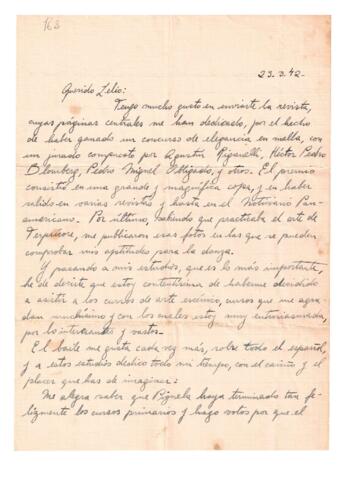 163
23.3.42-
Querido Lelio:
Tengo mucho gusto en enviarte la revista,
cuyas páginas centrales me han dedicado, por el hecho
de haber ganado un concurso de elegancia en malla, con
un jurado compuesto por Agustín Riganelli, Héctor Pedro
Blomberg, Pedro Miguel Obligado, y otros. El premio
consistió en una grande y magnífica copa, y en haber
salido en varias revistas y hasta en el Noticiario Pan-
americano. Por último, sabiendo que practicaba el arte de
Terpsícore, me publicaron esas fotos en las que se pueden
comprobar mis aptitudes para la danza.
Y pasando a mis estudios, que es lo más importante,
he de decirte que estoy contentísima de haberme decidido
a asistir a los cursos de arte escénico, cursos que me agra
dan muchísimo y con los cuales estoy muy entusiasmada,
por lo interesantes y vastos.
El baile me gusta cada vez más, sobre todo el español,
y a estos estudios dedico todo mi tiempo, con el cariño y el
placer que has de imaginar.
Me alegra saber que haya terminado tan fe-
lizmente los cursos primarios y hago votos por que el